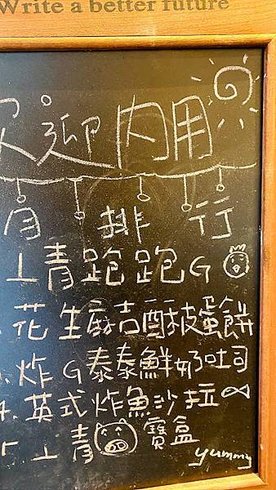 Write a better future
歡迎內用
月排行
1. 青跑跑G
2. 花生麻吉酥披蛋餅
3. 炸G泰泰鮮奶吐司
4. 英式炸魚沙拉
5. 上青寶盒
yummy